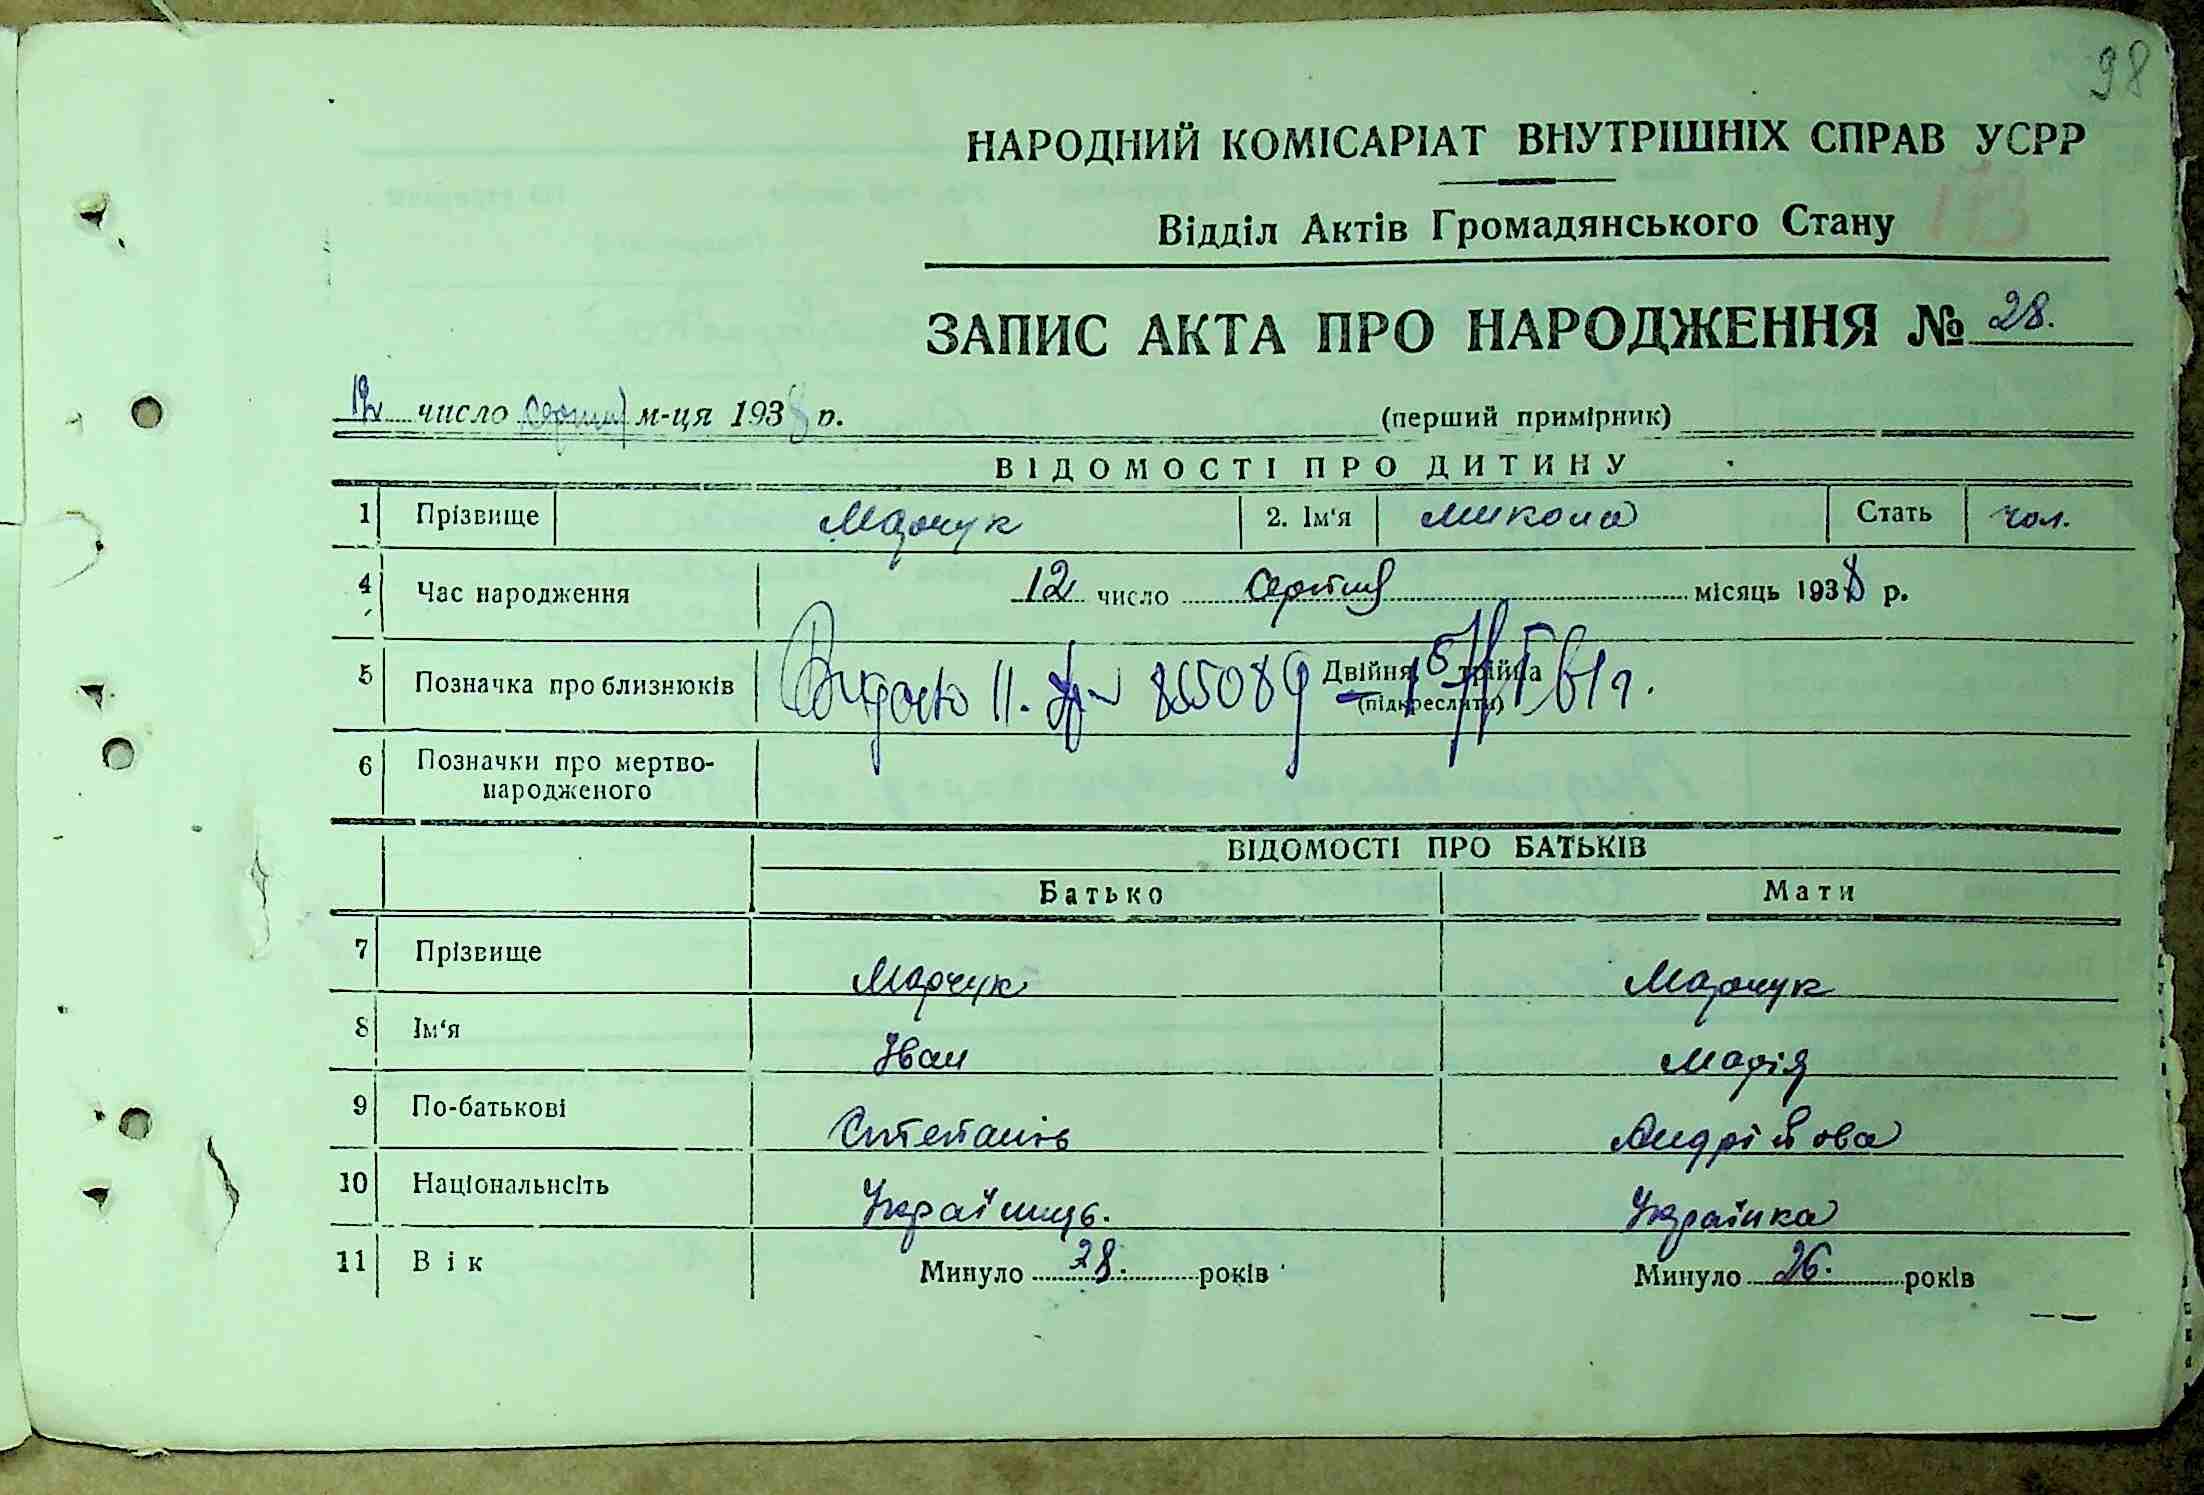 98
НАРОДНИЙ КОМІСАРІАТ ВНУТРІШНІХ СПРАВ УСРР
Відділ Актів Громадянського Стану
ЗАПИС АКТА ПРО НАРОДЖЕННЯ № 28.
число м-ця 1938 р. (перший примірник)
ВІДОМОСТІ ПРО ДИТИНУ
1 Прізвище Марчук 2. Ім'я Микола Стать чол.
4 Час народження 12 число Серпня місяць 1938 р.
5 Позначка про близнюків Двійня, трійня
(підкреслити)
Видано 855089
6 Позначки про мертво-
народженого
ВІДОМОСТІ ПРО БАТЬКІВ
Батько Мати
7 Прізвище Марчук Марчук
8 Ім'я Іван Марія
9 По-батькові Степанів Андрійова
10 Національність Українць. Українка
11 Вік Минуло 28. років Минуло 26. років